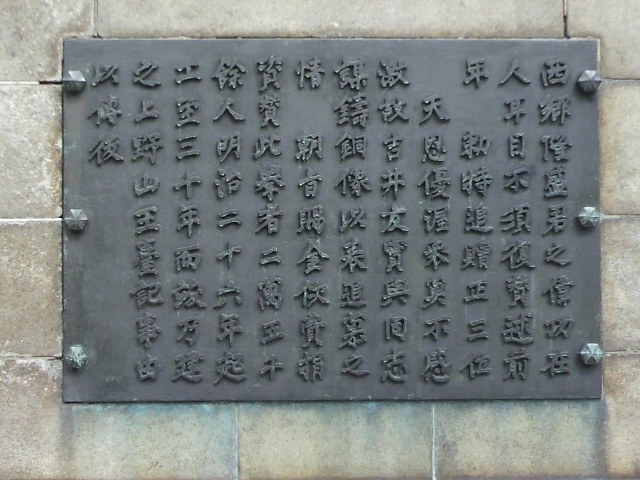 西郷隆盛君之偉功在
人耳目不須復贊述前
年　勅特追贈正三位
　天恩優渥衆莫不感
激故吉井友實與同志
謀鑄銅像以表追慕之
情　朝旨賜金佽費捐
資贊此擧者二萬五千
餘人明治二十六年起
工至三十年而竣乃建
之上野山王臺記事由
以傳後